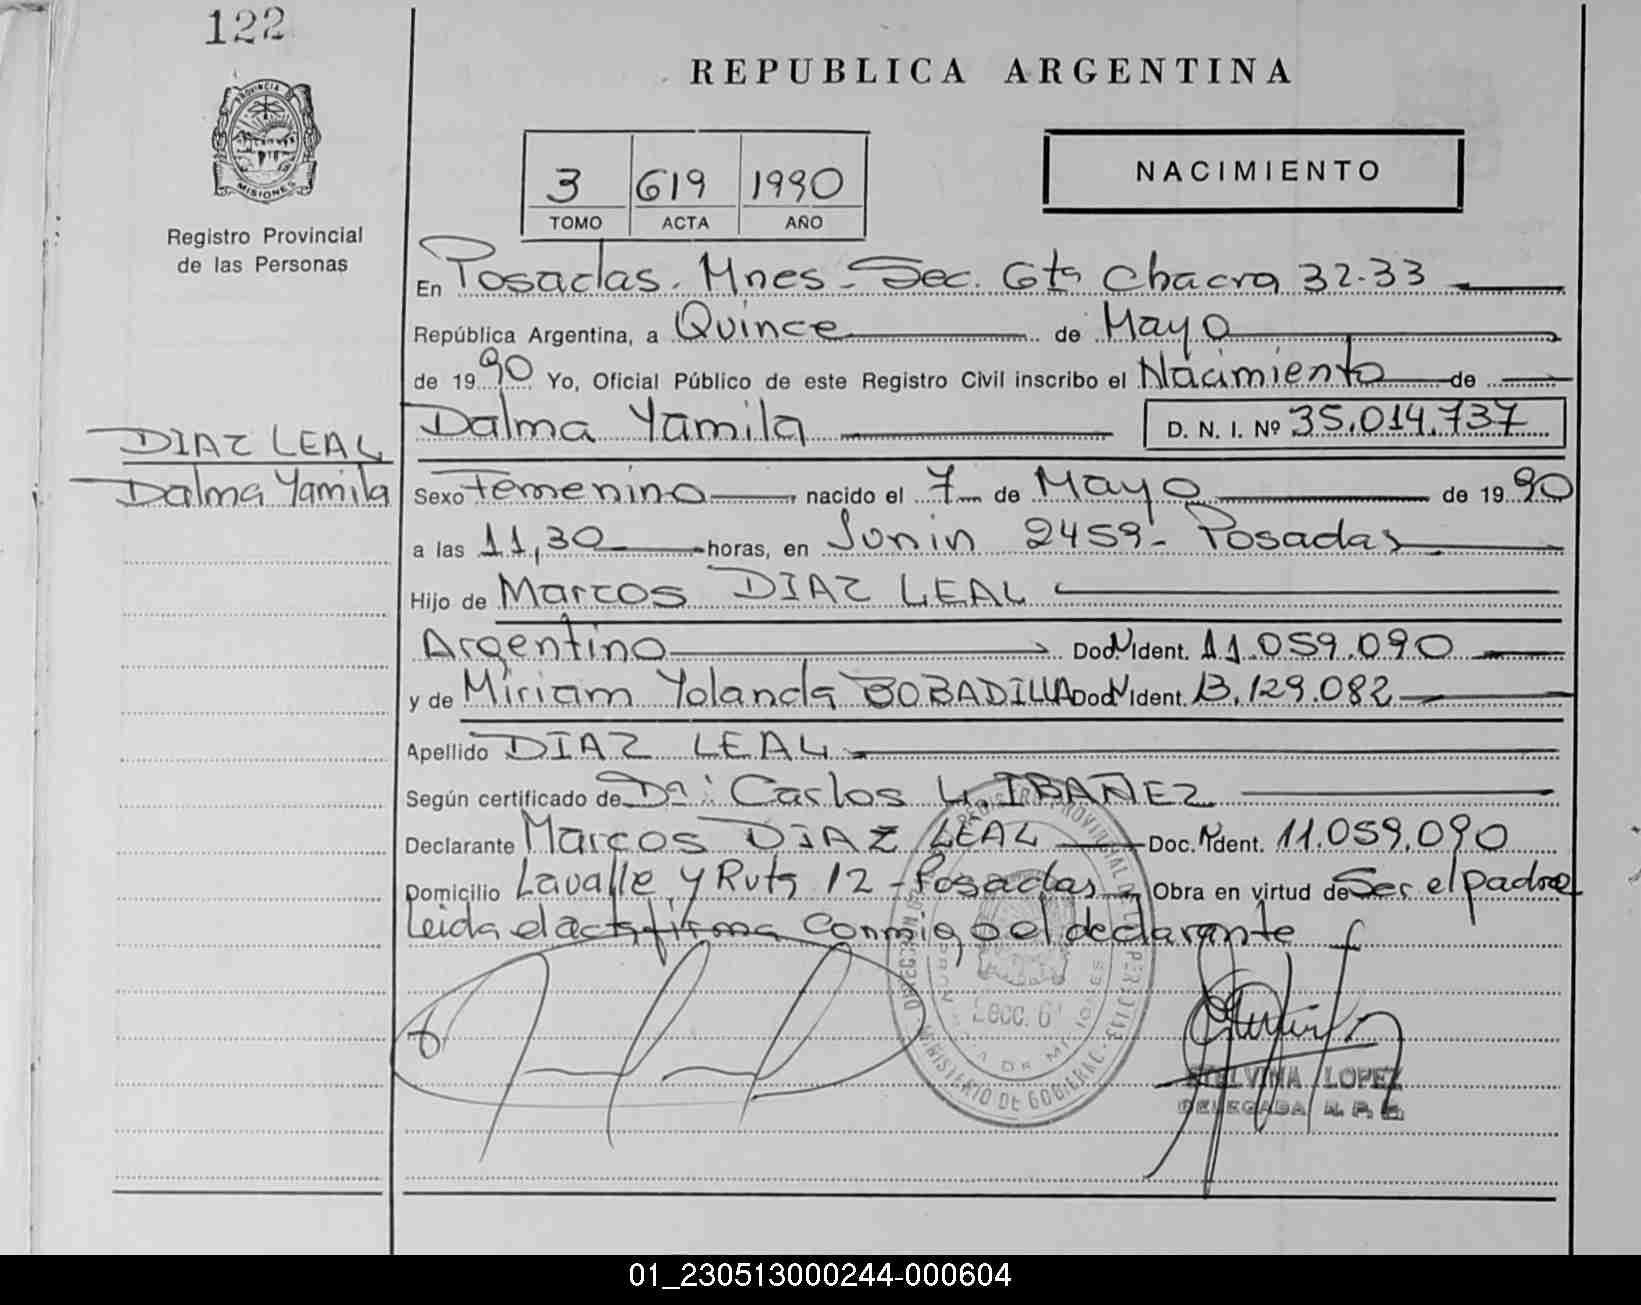 122
REPUBLICA ARGENTINA
PROVINCIA
MISIONES
3 619 1990
TOMO ACTA AÑO
NACIMIENTO
Registro Provincial
de las Personas
En Posadas. Mnes. Sec. 6ta Chacra 32-33
República Argentina, a Quince de Mayo
de 1990 Yo, Oficial Público de este Registro Civil inscribo el Nacimiento de
Dalma Yamila D. N. I. Nº 35.014.737
DIAZ LEAL
Dalma Yamila
Sexo Femenino nacido el 7 de Mayo de 1990
a las 11,30 horas, en Junin 2459- Posadas
Hijo de Marcos DIAZ LEAL
Argentino Doc. N Ident. 11.059.090
y de Miriam Yolanda BOBADILLA Doc. N Ident. 13.129.082
Apellido DIAZ LEAL
Según certificado de Dn: Carlos IBAÑEZ
Declarante Marcos DIAZ LEAL Doc. N Ident. 11.059.090
Domicilio Lavalle y Ruta 12 - Posadas Obra en virtud de Ser el padre
Leida el acta firma conmigo el declarante
Secc. 6
MINISTERIO DE GOBIERNO
LOPEZ
DELEGADA R. P. P.
01_230513000244-000604